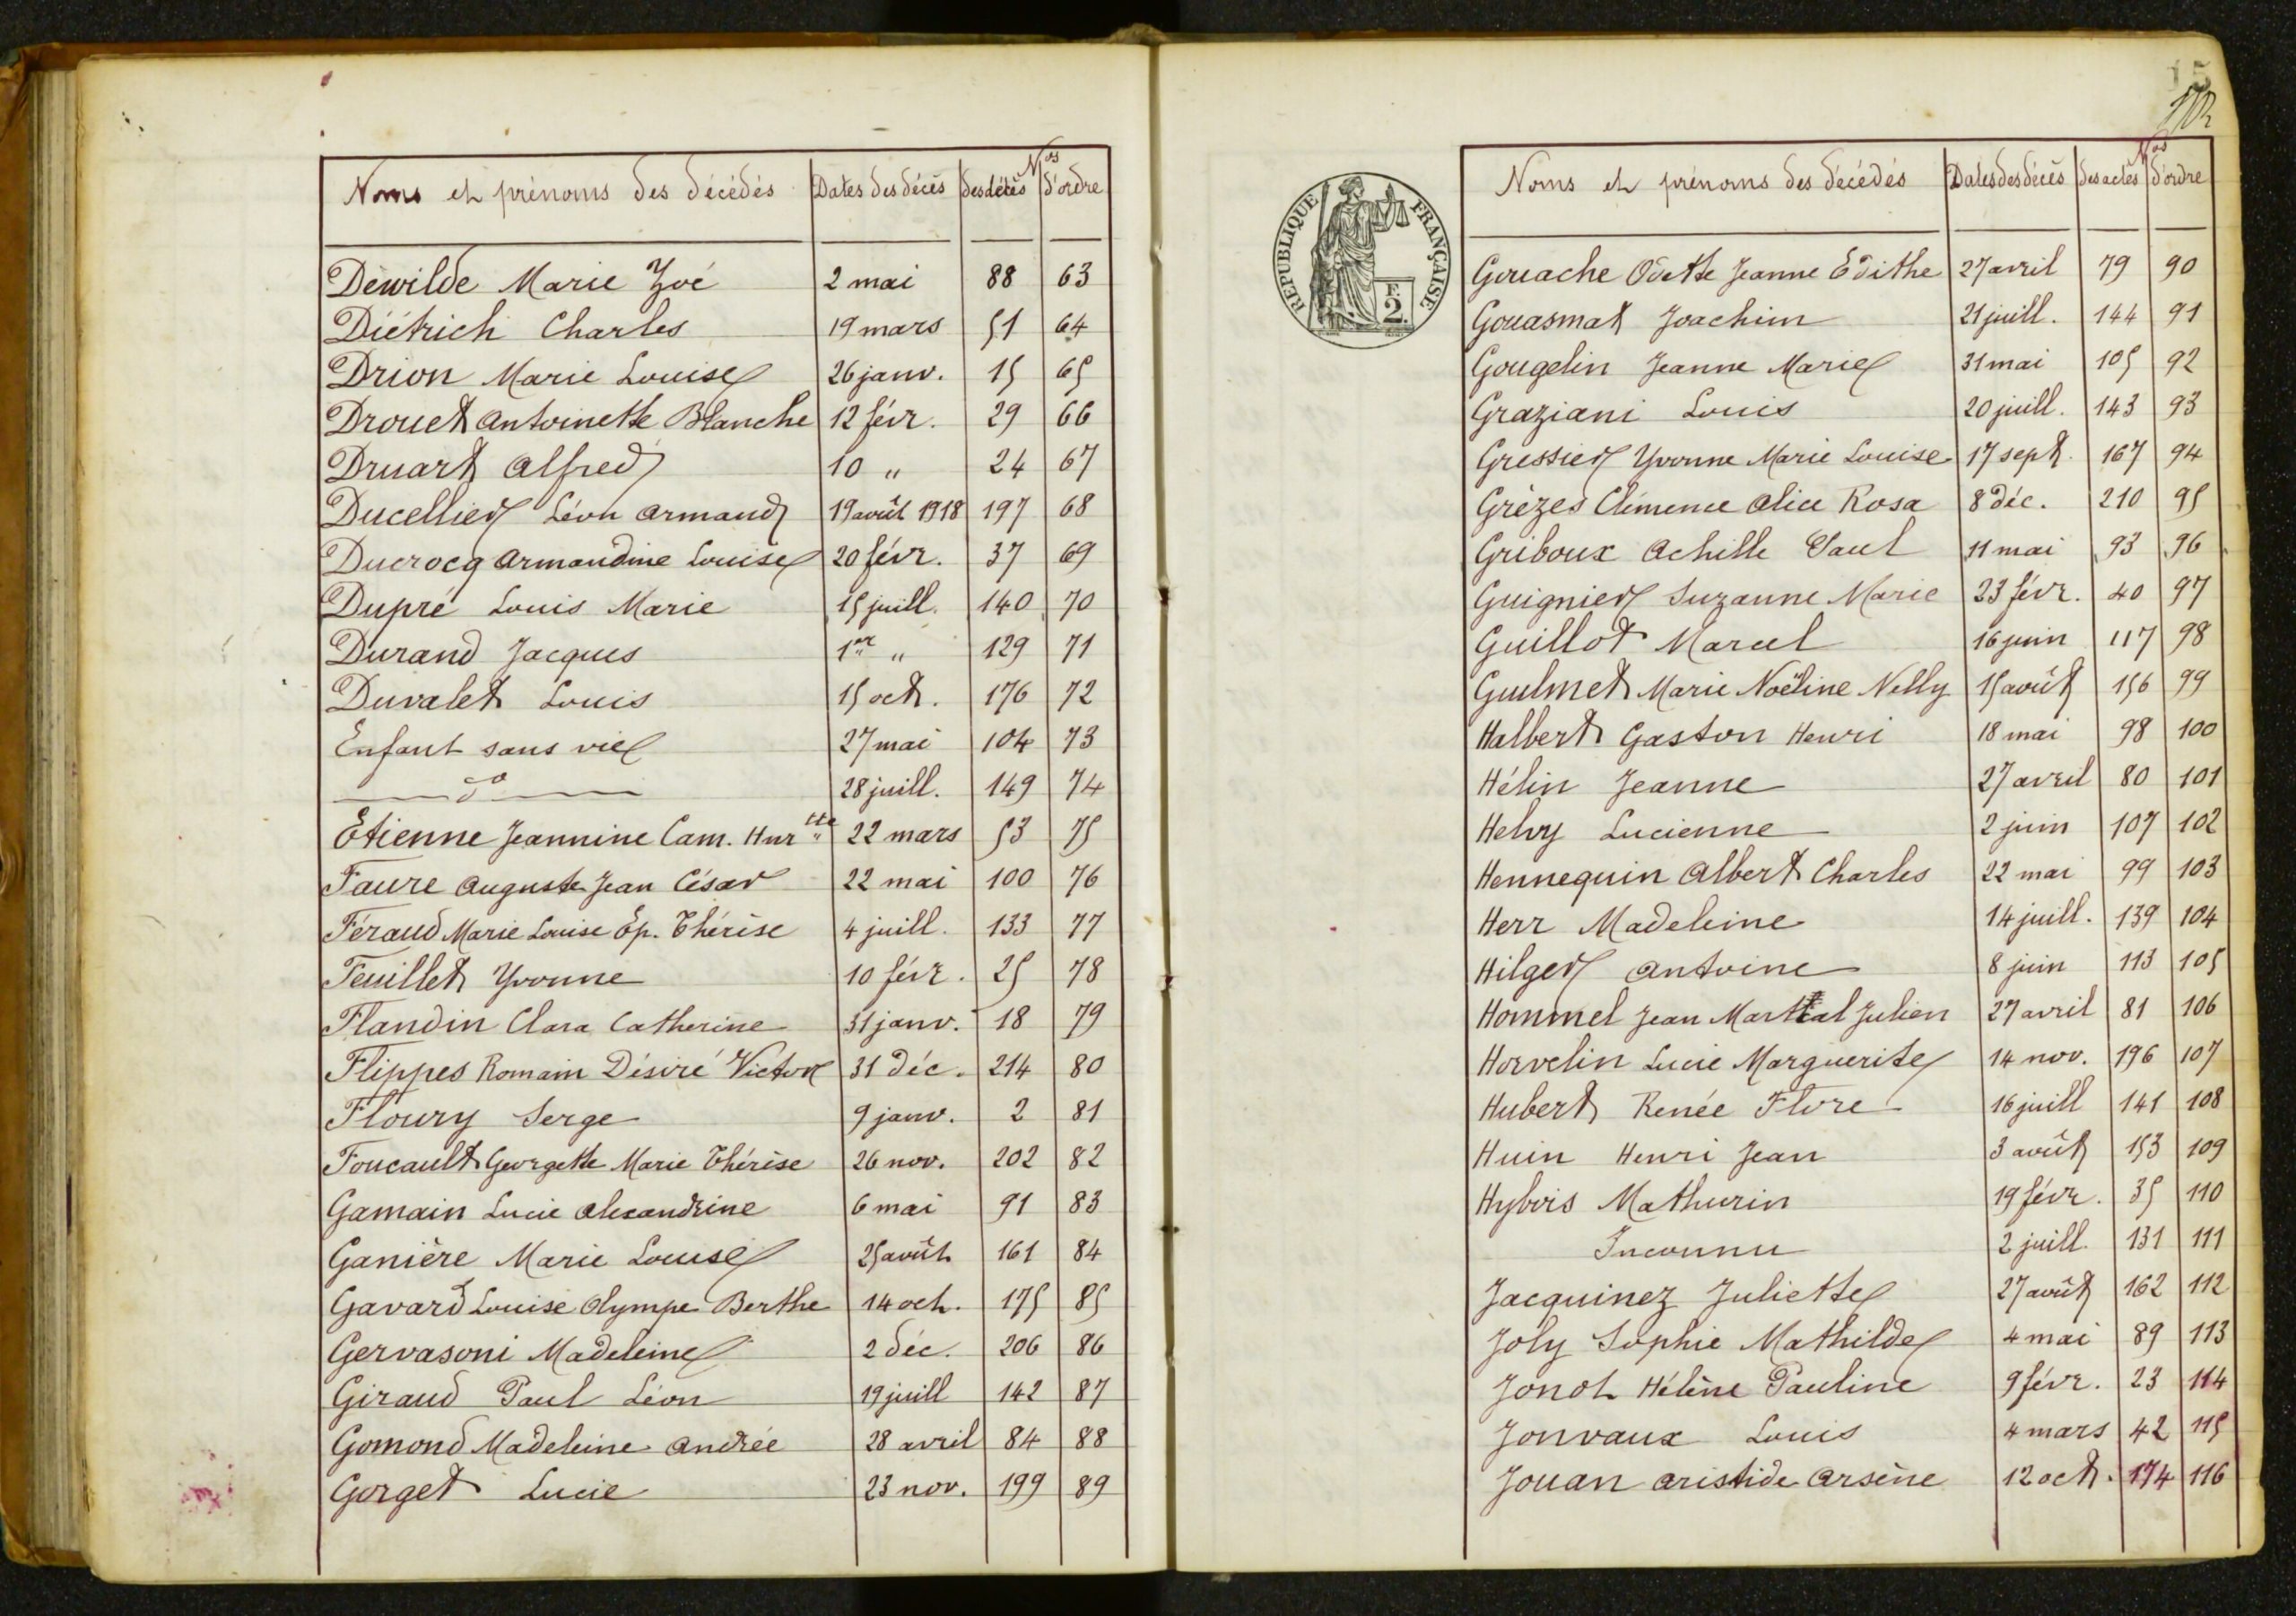 Nos
Noms et prénoms des décédés Dates des décès des décès d'ordre
Dewilde Marie Zoé 2 mai 88 63
Diétrich Charles 19 mars 51 64
Drion Marie Louise 26 janv. 15 65
Drouet Antoinette Blanche 12 févr. 29 66
Druart Alfred 10 " 24 67
Ducellier Léon Armand 19 août 1918 197 68
Ducrocq Armandine Louise 20 févr. 37 69
Dupré Louis Marie 15 juill. 140 70
Durand Jacques 1er " 129 71
Duvalet Louis 15 oct. 176 72
Enfant sans vie 27 mai 104 73
— do — 28 juill. 149 74
Etienne Jeannine Cam. Hnrtte 22 mars 53 75
Faure Auguste Jean César 22 mai 100 76
Féraud Marie Louise Ep. Thérèse 4 juill. 133 77
Feuillet Yvonne 10 févr. 25 78
Flandin Clara Catherine 31 janv. 18 79
Flippes Romain Désiré Victor 31 déc. 214 80
Floury Serge 9 janv. 2 81
Foucault Georgette Marie Thérèse 26 nov. 202 82
Gamain Lucie Alexandrine 6 mai 91 83
Ganière Marie Louise 25 août 161 84
Gavard Louise Olympe Berthe 14 oct. 175 85
Gervasoni Madeleine 2 déc. 206 86
Giraud Paul Léon 19 juill 142 87
Gomond Madeleine Andrée 28 avril 84 88
Gorget Lucie 23 nov. 199 89
15
RÉPUBLIQUE FRANÇAISE
F.
2.
Nos
Noms et prénoms des décédés Dates des décès des actes d'ordre
Gouache Odette Jeanne Edithe 27 avril 79 90
Gouasmat Joachim 21 juill. 144 91
Gougelin Jeanne Marie 31 mai 105 92
Graziani Louis 20 juill. 143 93
Gressier Yvonne Marie Louise 17 sept. 167 94
Grèzes Clémence Alice Rosa 8 déc. 210 95
Griboux Achille Paul 11 mai 93 96
Guignier Suzanne Marie 23 févr. 40 97
Guillot Marcel 16 juin 117 98
Guilmet Marie Noëline Nelly 15 août 156 99
Halbert Gaston Henri 18 mai 98 100
Hélin Jeanne 27 avril 80 101
Helvy Lucienne 2 juin 107 102
Hennequin Albert Charles 22 mai 99 103
Herr Madeleine 14 juill. 139 104
Hilger Antoine 8 juin 113 105
Hommel Jean Martial Julien 27 avril 81 106
Horvelin Lucie Marguerite 14 nov. 196 107
Hubert Renée Flore 16 juill 141 108
Huin Henri Jean 3 août 153 109
Hybois Mathurin 19 févr. 35 110
Inconnu 2 juill. 131 111
Jacquinez Juliette 27 août 162 112
Joly Sophie Mathilde 4 mai 89 113
Jonot Hélène Pauline 9 févr. 23 114
Jonvaux Louis 4 mars 42 115
Jouan Aristide Arsène 12 oct. 174 116